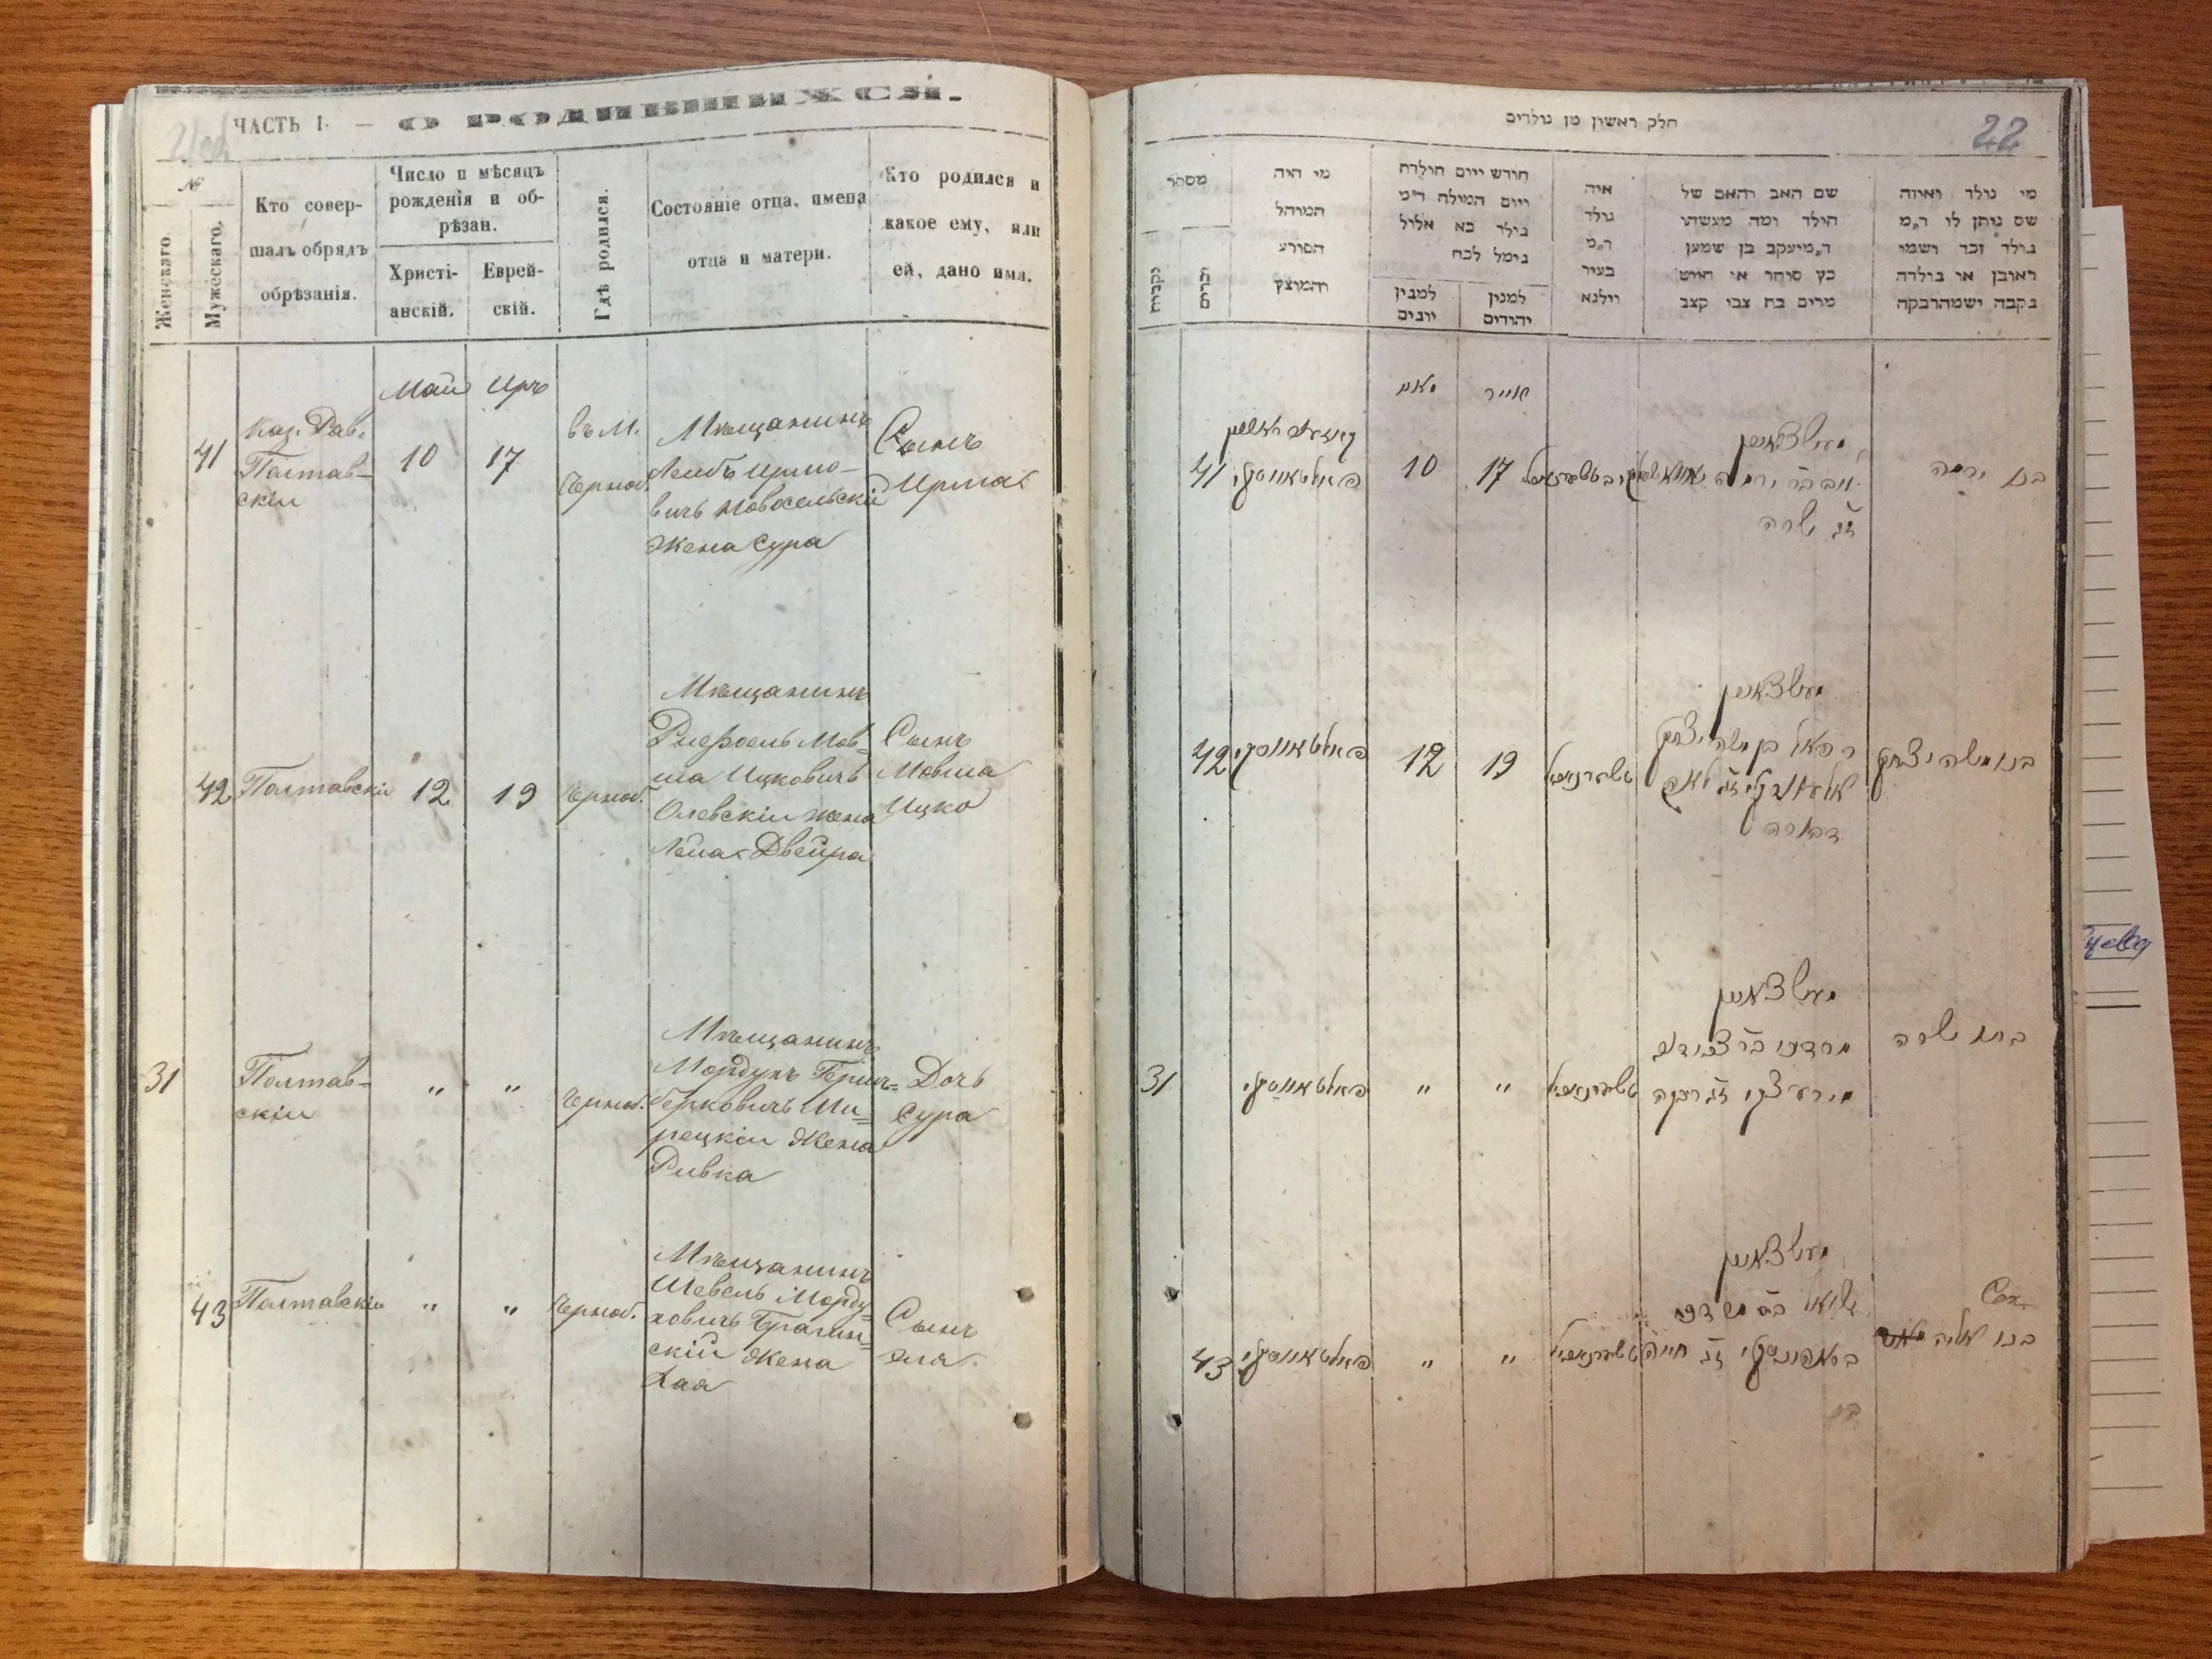 ЧАСТЬ I. — О РОДИВШИХСЯ.
№
Женскаго.
Мужескаго.
Кто совер-
шалъ обрядъ
обрѣзанія.
Число и мѣсяцъ
рожденія и об-
рѣзан.
Христі-
анскій.
Еврей-
скій.
Гдѣ родился.
Состояніе отца, имена
отца и матери.
Кто родился и
какое ему, или
ей, дано имя.
Май Иръ
41
Каз. Рав.
Полтав-
скій
10
17
въ М.
Черноб.
Мѣщанинъ
Лейбъ Ирмо-
вичъ Новосельскій
жена Сура
Сынъ
Ирма
42
Полтавскій
12
19
Черноб.
Мѣщанинъ
Рефоель Мов-
ша Ицковичъ
Олевскій жена
Лея Двейра
Сынъ
Мовша
Ицко
31
Полтав-
скій
"
"
Черноб.
Мѣщанинъ
Мордухъ Гершъ-
Берковичъ Ми-
рецкій жена
Ривка
Дочь
Сура
43
Полтавскій
"
"
Черноб.
Мѣщанинъ
Шевель Морду-
ховичъ Брагин-
скій жена
Хая
Сынъ
Эля
22
חלק ראשון מן נולדים
מספר
נקבות
זכרים
מי היה
המוהל
הפורע
והמוצץ
חודש ויום הולדת
ויום המילה ד״מ
נולד כא אלול
נימל לכח
למנין
יונים
למנין
יהודים
איה
נולד
ד״מ
בעיר
ווילנא
שם האב והאם של
הילד ומה מעשהו
ד״מ יעקב בן שמען
כץ סוחר או חייט
מרים בת צבי קצב
מי נולד ואיזה
שם ניתן לו ד״מ
נולד זכר ושמו
ראובן או נולדה
נקבה ושמה רבקה
מאי
אייר
41
פאלטאווסקי
10
17
מעשצאנין
זוג שרה
בנו ירמה
42
פאלטאווסקי
12
19
טשערנאביל
מעשצאנין
רפאל בן משה יצחק
דבורה
בנו משה יצחק
31
פאלטאווסקי
"
"
טשערנאביל
מעשצאנין
זוג רבקה
בתו שרה
43
פאלטאווסקי
"
"
טשערנאביל
מעשצאנין
זוג חייה
בנו אליה